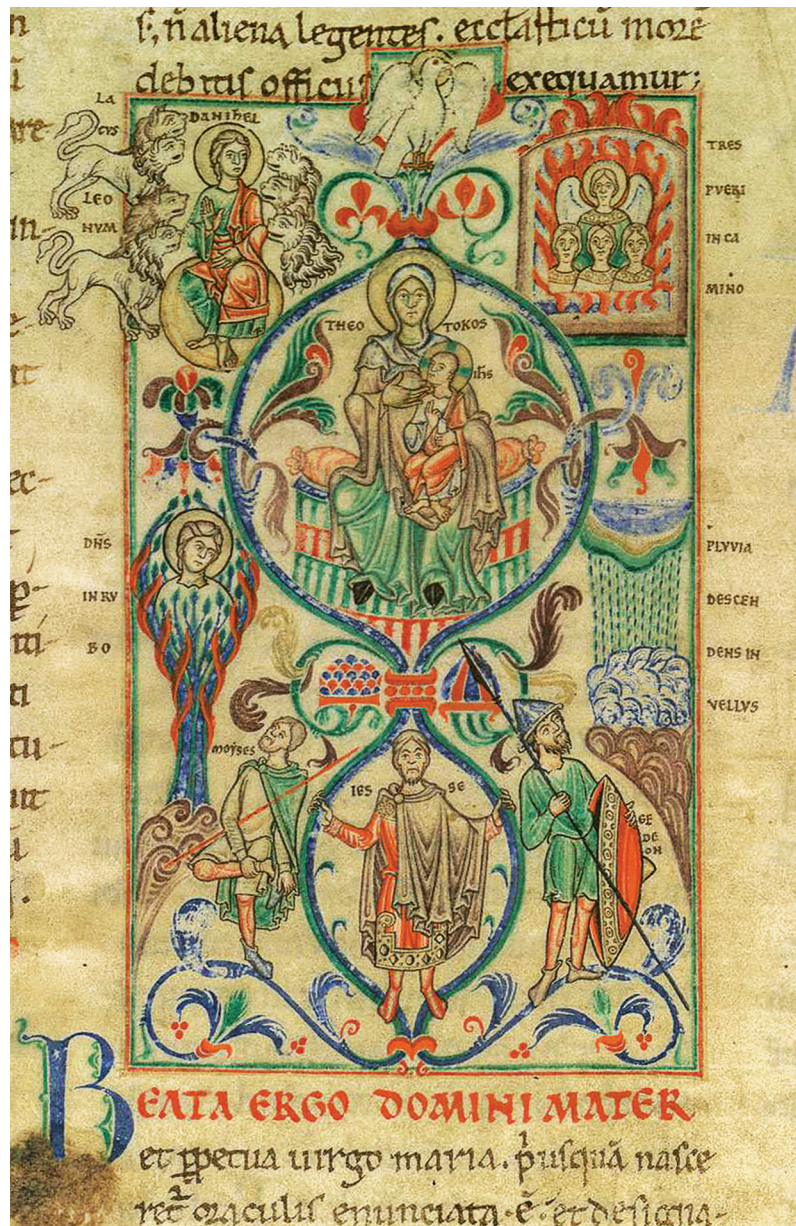 s; n̄ aliena legentes. eccl̄asticū morē
debitis officiis exequamur;
LA
CVS
LEO
NVM
DANIHEL
TRES
PVERI
IN CA
MINO
THEO TOKOS
ihs
DN̄S
IN RV
BO
PLVVIA
DESCEN
DENS IN
VELLVS
MOYSES
IES SE
GE
DE
ON
BEATA ERGO DOMINI MATER
et ꝑpetua uirgo maria. p'usquā nasce
ret' oraculis enunciata .ē. et designa-